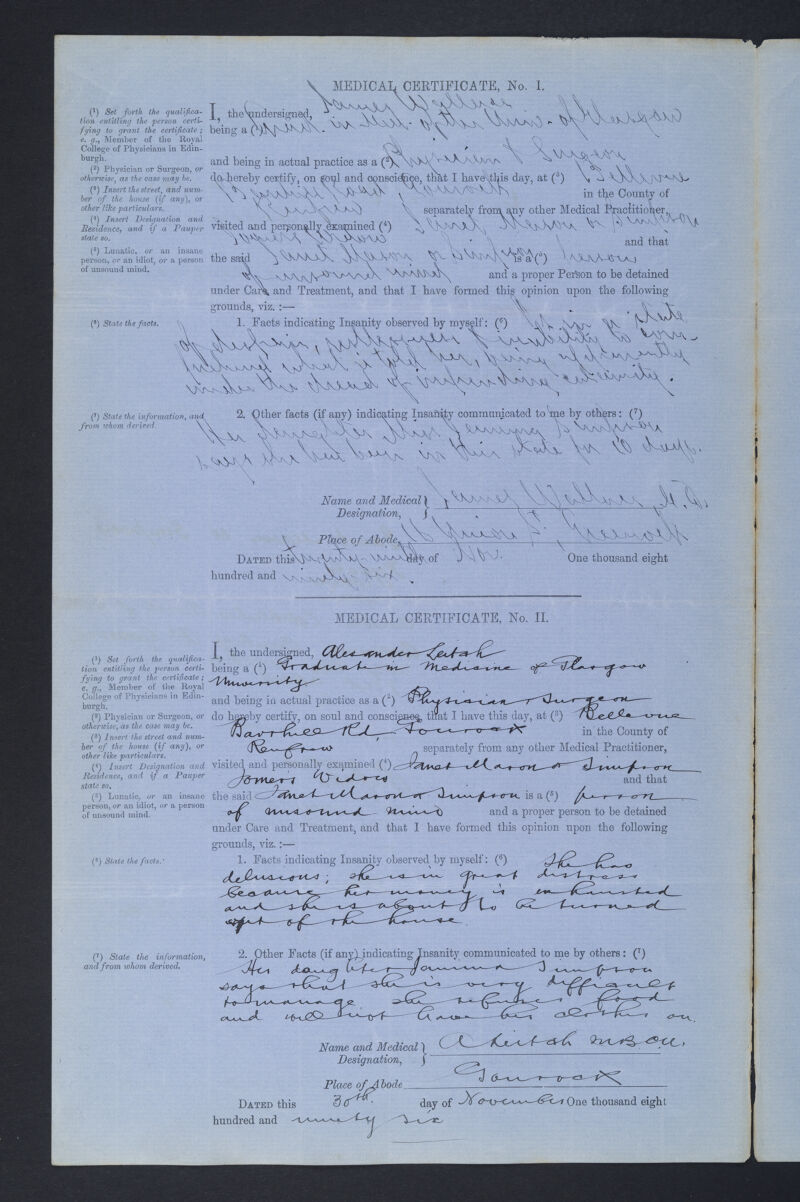 MEDICAL CERTIFICATE, No. I.
(¹) Set forth the qualifica-
tion entitling the person certi-
fying to grant the certificate;
e. g., Member of the Royal
College of Physicians in Edin-
burgh.
(²) Physician or Surgeon, or
otherwise, as the case may be.
(³) Insert the street, and num-
ber of the house (if any), or
other like particulars.
(⁴) Insert Designation and
Residence, and if a Pauper
state so.
(⁵) Lunatic, or an insane
person, or an idiot, or a person
of unsound mind.
I, the undersigned, James Wallace
being a (¹) Grad. in Med. of the Univ. of Glasgow
and being in actual practice as a (²) Physician & Surgeon
do hereby certify, on soul and conscience, that I have this day, at (³) Bellevue
Barrhill Road, Gourock in the County of
Renfrew separately from any other Medical Practitioner,
visited and personally examined (⁴) Janet Mason or Simpson
Widow and that
the said Janet Mason or Simpson is a (⁵) person
of unsound mind and a proper Person to be detained
under Care and Treatment, and that I have formed this opinion upon the following
grounds, viz. :—
(⁶) State the facts.
1. Facts indicating Insanity observed by myself: (⁶) is in a state
of inability to com-
prehend what is told her, being apparently
under the dread of impending calamity.
(⁷) State the information, and
from whom derived.
2. Other facts (if any) indicating Insanity communicated to me by others: (⁷)
Her daughter Miss Simpson
says she has been in this state for 10 days.
Name and Medical
Designation, James Wallace, M.D.
Place of Abode, Greenock
DATED this twenty-ninth day of Nov. One thousand eight
hundred and ninety-six.
MEDICAL CERTIFICATE, No. II.
(¹) Set forth the qualifica-
tion entitling the person certi-
fying to grant the certificate;
e. g., Member of the Royal
College of Physicians in Edin-
burgh.
(²) Physician or Surgeon, or
otherwise, as the case may be.
(³) Insert the street and num-
ber of the house (if any), or
other like particulars.
(⁴) Insert Designation and
Residence, and if a Pauper
state so.
(⁵) Lunatic, or an insane
person, or an idiot, or a person
of unsound mind.
I, the undersigned, Alexander Leitch
being a (¹) Graduate in Medicine of Glasgow
University
and being in actual practice as a (²) Physician & Surgeon
do hereby certify, on soul and conscience, that I have this day, at (³) Bellevue
Barrhill Rd, Gourock in the County of
Renfrew separately from any other Medical Practitioner,
visited and personally examined (⁴) Janet Mason or Simpson
Widow and that
the said Janet Mason or Simpson is a (⁵) person
of unsound mind and a proper person to be detained
under Care and Treatment, and that I have formed this opinion upon the following
grounds, viz. :—
(⁶) State the facts.
1. Facts indicating Insanity observed by myself: (⁶) She has
delusions; she is in great distress
because her money is exhausted
and she is about to be turned
out of the house.
(⁷) State the information,
and from whom derived.
2. Other Facts (if any) indicating Insanity communicated to me by others: (⁷)
Her daughter Simpson
says that she is very difficult
to manage she refuses food
and will not have her clothes on.
Name and Medical
Designation, A Leitch M.B. C.M.
Place of Abode Gourock
DATED this 30th. day of November One thousand eight
hundred and ninety six